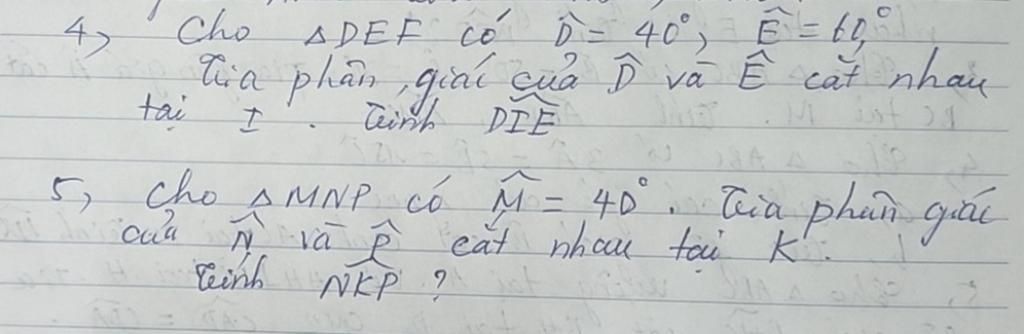 4, Cho △DEF có D̂ = 40°, Ê = 60°
Tia phân giác của D̂ và Ê cắt nhau
tại I. Tính DIE
5, Cho △MNP có M̂ = 40°. Tia phân giác
của N̂ và P̂ cắt nhau tại K.
Tính NKP?